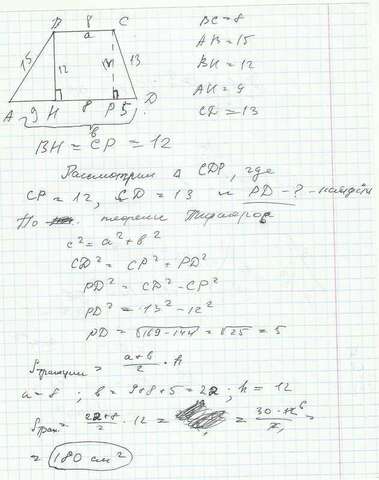 B 8 C
a
15 12 12 13
A 9 H 8 P 5 D
в
BC = 8
AB = 15
BH = 12
AH = 9
CD = 13
BH = CP = 12
Рассмотрим Δ CDP, где
CP = 12, CD = 13 и PD - ? - найдём
По теореме Пифагора
c² = a² + b²
CD² = CP² + PD²
PD² = CD² - CP²
PD² = 13² - 12²
PD = √169-144 = √25 = 5
Sтрапеции = a+b/2 · h
a = 8 ; b = 9+8+5 = 22 ; h = 12
Sтрап = 22+8/2 · 12 = = 30·12 6/2 1 =
= 180 см²